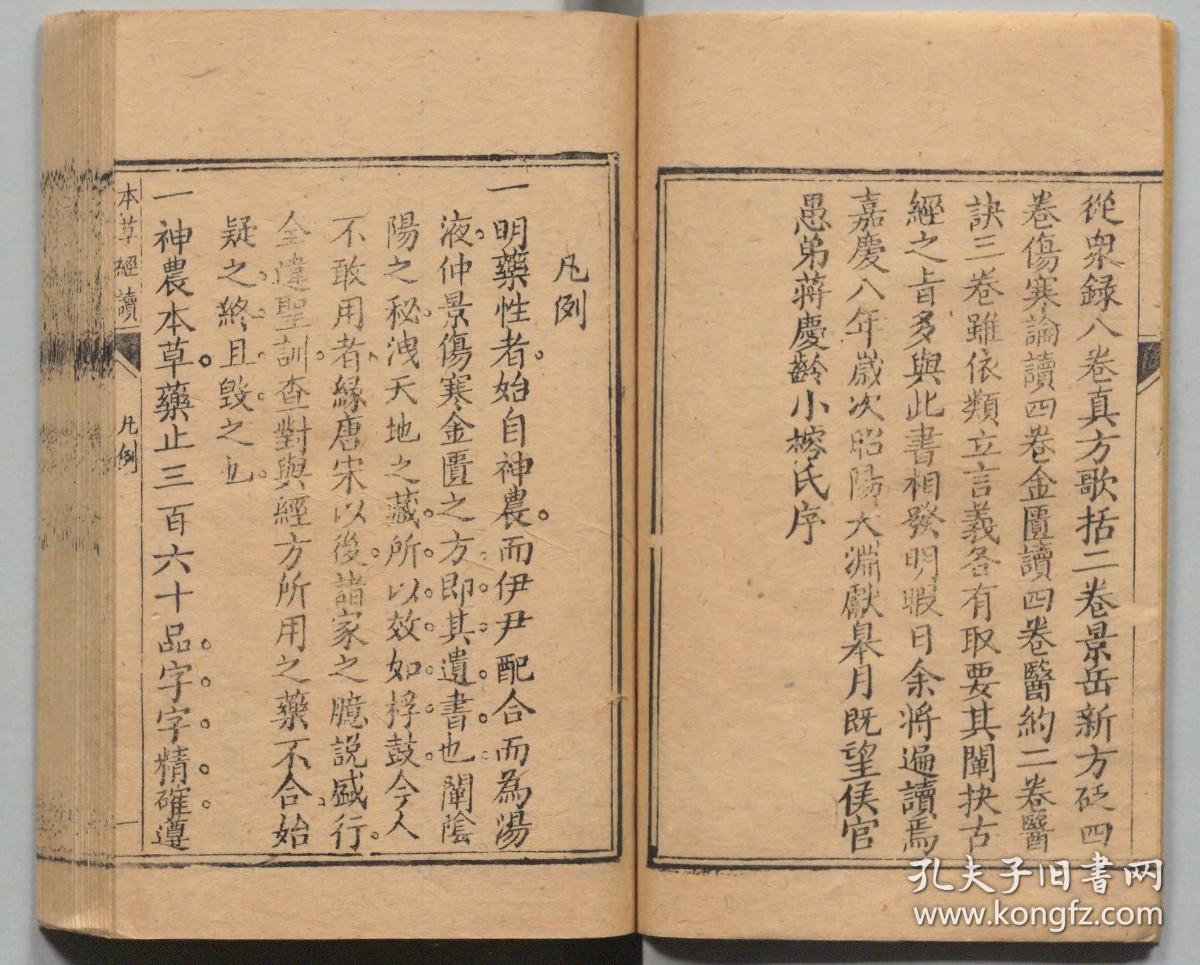 從衆録八卷真方歌括二卷景岳新方砭四
卷傷寒論讀四卷金匱讀四卷醫約二卷醫
訣三卷雖依類立言義各有取要其闡抉古
經之旨多與此書相發明暇日余將遍讀焉
嘉慶八年歲次昭陽大淵獻皋月既望侯官
愚弟蔣慶齡小榕氏序
凡例
一明藥性者。始自神農。而伊尹配合而為湯
液。仲景傷寒金匱之方。即其遺書也。闡陰
陽之秘。洩天地之藏。所以效如桴鼓。今人
不敢用者。緣唐宋以後。諸家之臆說盛行。
全違聖訓。查對與經方所用之藥不合。始
疑之。終且毀之也。
一神農本草。藥止三百六十品。字字精確。遵
本草經讀
凡例
一
孔夫子旧书网
www.kongfz.com